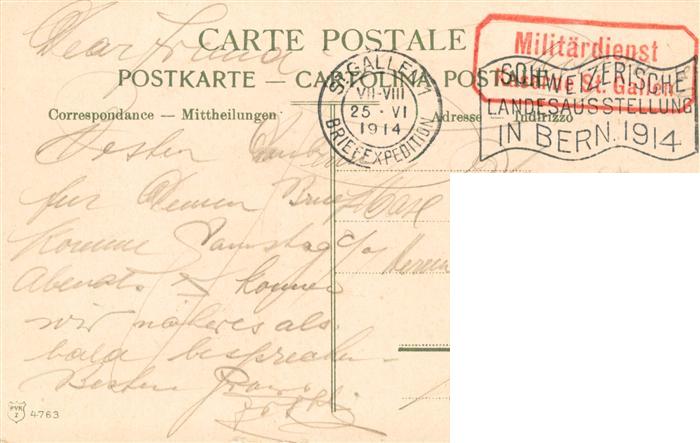 Dear Friend
CARTE POSTALE
POSTKARTE — CARTOLINA POSTALE
Correspondance — Mittheilungen
Adresse — Indirizzo
Militärdienst
Kaserne St. Gallen
ST. GALLEN 1
VII-VIII
25 - VI
1914
BRIEFEXPEDITION
SCHWEIZERISCHE
LANDESAUSSTELLUNG
IN BERN. 1914
Besten Dank
für Deinen Brief
komme Samstag
Abends & können
wir näheres als
bald besprechen
Besten Gruss
c/o
PVK
Z
4763